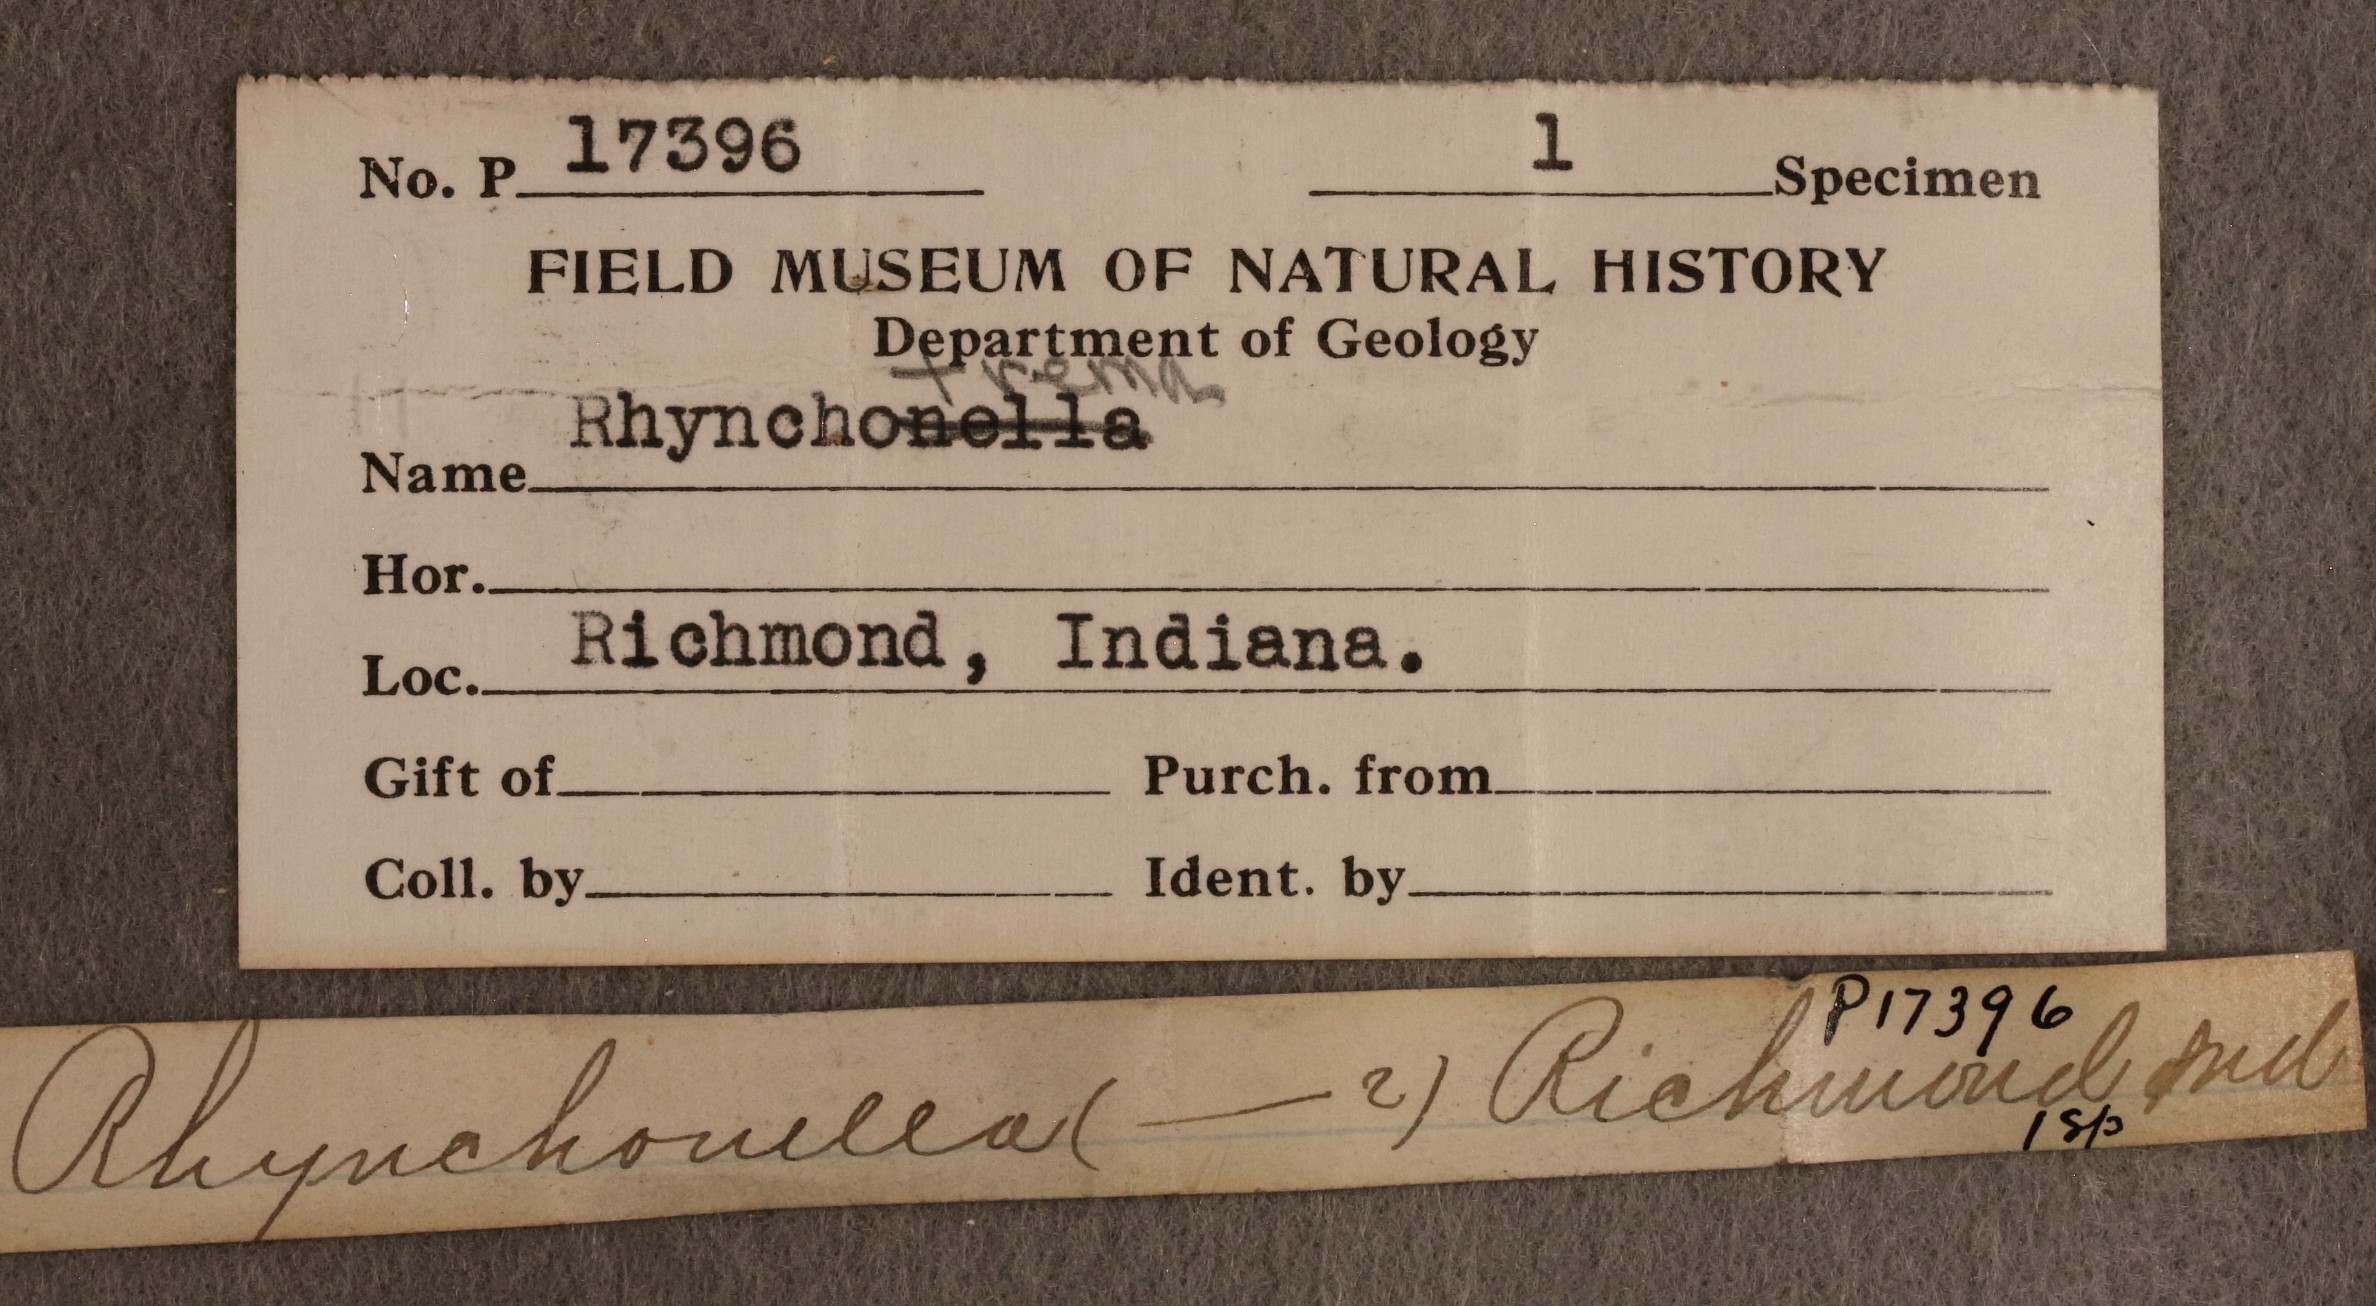 No. P 17396 1 Specimen
FIELD MUSEUM OF NATURAL HISTORY
Department of Geology
trema
Name Rhynchonella
Hor.
Loc. Richmond, Indiana.
Gift of Purch. from
Coll. by Ident. by
P17396
Rhynchonella ( — ?) Richmond Ind
1 sp